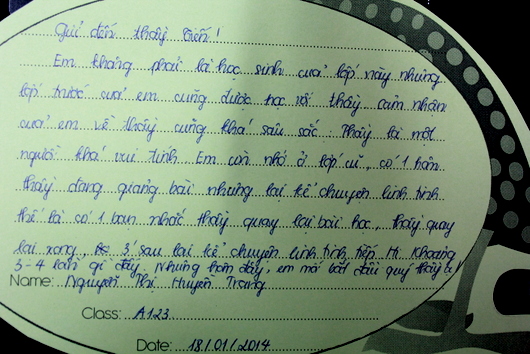 Gửi đến thầy Tiến!
Em không phải là học sinh của lớp này nhưng
lớp trước của em cũng được học với thầy cảm nhận
của em về thầy cũng khá sâu sắc. Thầy là một
người khá vui tính. Em còn nhớ ở lớp cũ, có 1 hôm
thầy đang giảng bài nhưng lại kể chuyện linh tinh
thế là có 1 bạn nhắc thầy quay lại bài học, thầy quay
lại xong, 3' sau lại kể chuyện linh tinh tiếp Hi Khoảng
3-4 lần gì đấy, Nhưng hôm đấy, em mới bắt đầu quý thầy
Name: Nguyễn Thị Huyền Trang
Class: A123
Date: 18/01/2014